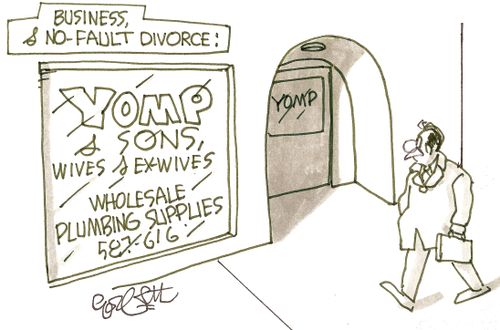 BUSINESS,
& NO-FAULT DIVORCE:
YOMP
& SONS,
WIVES & EX-WIVES
WHOLESALE
PLUMBING SUPPLIES
YOMP